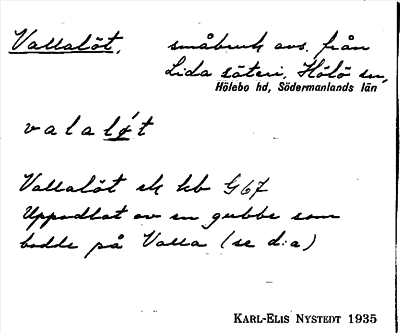 Vallalöt, småbruk avs. från
Lida säteri, Hölö sn,
Hölebo hd, Södermanlands län
valalǿt
Vallalöt ek kb G67
Uppodlat av en gubbe som
bodde på Valla (se d:a)
KARL-ELIS NYSTEDT 1935